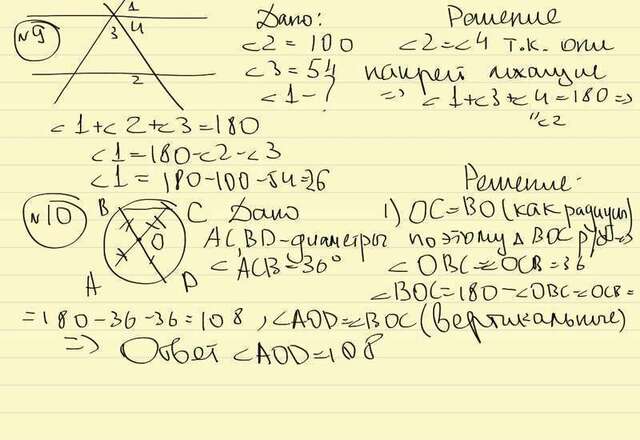 №9
1
3 4
2
Дано:
<2 = 100
<3 = 54
<1 - ?
Решение
<2 = <4 т.к. они
накрест лжащие
=> <1+<3+<4=180=>
"<2
<1+<2+<3=180
<1=180-<2-<3
<1=180-100-54=26
№10
B C
O
A D
Дано
AC, BD - диаметры
<ACB=36°
Решение.
1) OC=BO (как радиусы)
поэтому △BOC р/б=>
<OBC=<OCB=36
<BOC=180-<OBC-<OCB=
=180-36-36=108, <AOD=<BOC (вертикальные)
=> Ответ <AOD=108